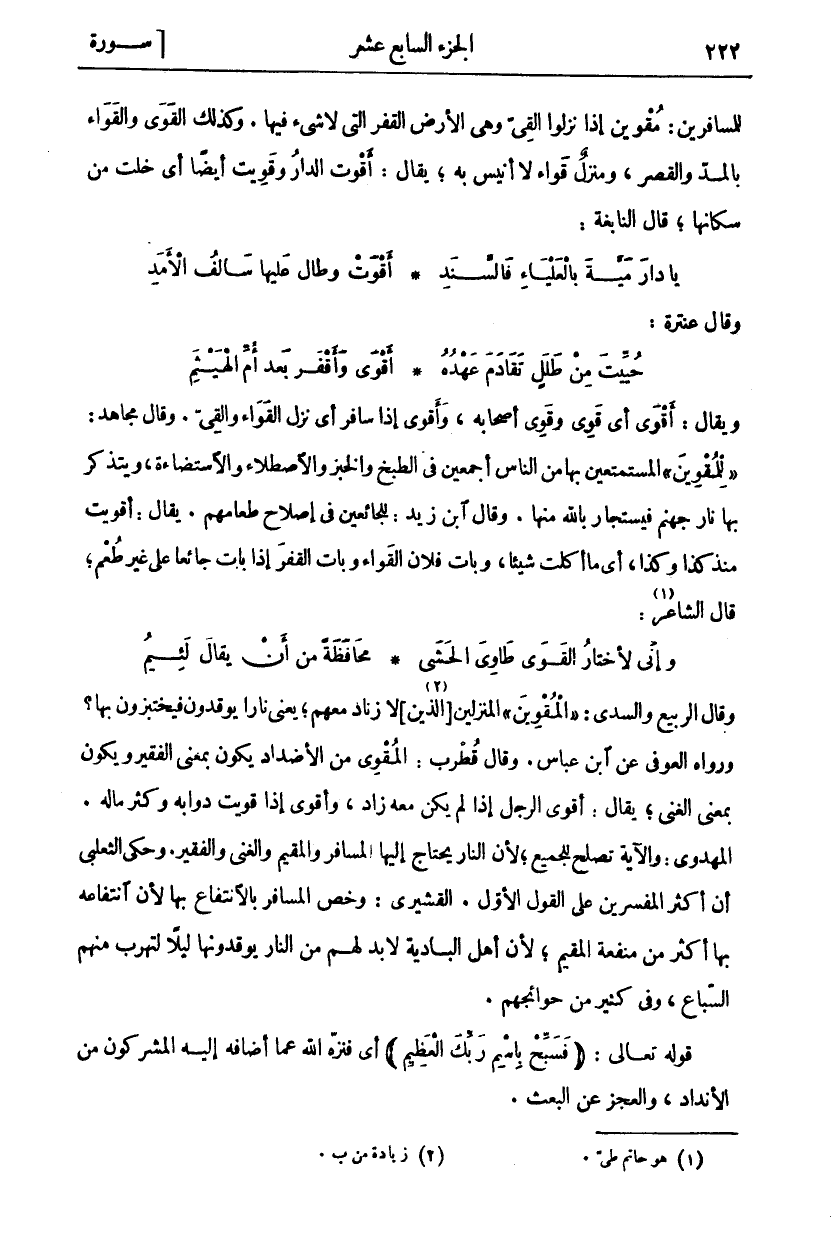 ٢٢٢ الجزء السابع عشر [ســورة
للمسافرين: مُقْوين إذا نزلوا القِىّ وهى الأرض القفر التى لا شىء فيها . وكذلك القَوَى والقَوَاء
بالمــدّ والقصر ، ومنزلٌ قَواء لا أنيس به ؛ يقال : أَقْوت الدارُ وقَوِيت أيضًا أى خلت من
سكانها ؛ قال النابغة :
يا دارَ مَيَّــةَ بالْعَلْيَاءِ فَالسَّــنَدِ * أَقْوَتْ وطال عليها سَــالفُ الْأَمَدِ
وقال عنترة :
حُيِّيتَ مِنْ طَلَلٍ تَقَادَمَ عَهْدُهُ * أَقْوَى وَأَقْفَــر بَعد أُمِّ الْهَيْــثَمِ
ويقال : أَقْوَى أى قَوِى وقَوِى أصحابه ، وأَقوى إذا سافر أى نزل القَوَاء والقِىّ . وقال مجاهد:
«لِلْمُقْوِينَ» المستمتعين بها من الناس أجمعين فى الطبخ والخبز والاصطلاء والاستضاءة، ويتذكر
بها نار جهنم فيستجار بالله منها . وقال ٱبن زيد : للجائعين فى إصلاح طعامهم . يقال : أقويت
منذ كذا وكذا ، أى ما أكلت شيئا ، وبات فلان القَواء وبات القفرَ إذا بات جائعا على غير طُعْم؛
قال الشاعر (١) :
وإنّى لأختارُ القَــوَى طَاوِىَ الحَشَى * محَافَظَةً من أَنْ يقالَ لَئِــيمُ
وقال الربيع والسدى : «الْمُقْوِينَ» المنزلين [الذين] (٢) لا زناد معهم؛ يعنى نارا يوقدون فيختبزون بها؟
ورواه العوفى عن ٱبن عباس . وقال قُطْرب : المُقْوِى من الأضداد يكون بمعنى الفقير ويكون
بمعنى الغنى ؛ يقال : أقوى الرجل إذا لم يكن معه زاد ، وأقوى إذا قويت دوابه وكثر ماله .
المهدوى : والآية تصلح للجميع ؛ لأن النار يحتاج إليها المسافر والمقيم والغنى والفقير. وحكى الثعلبي
أن أكثر المفسرين على القول الأوّل . القشيرى : وخص المسافر بالٱنتفاع بها لأن ٱنتفاعه
بها أكثر من منفعة المقيم ؛ لأن أهل البــادية لابد لهــم من النار يوقدونها ليلًا لتهرب منهم
السّباع ، وفى كثير من حوائجهم .
قوله تعــالى : ﴿ فَسَبِّحْ بِاسْمِ رَبِّكَ الْعَظِيمِ ﴾ أى فنزّه الله عما أضافه إليــه المشركون من
الأنداد ، والعجز عن البعث .
(١) هو حاتم طىّ . (٢) زيادة من ب .